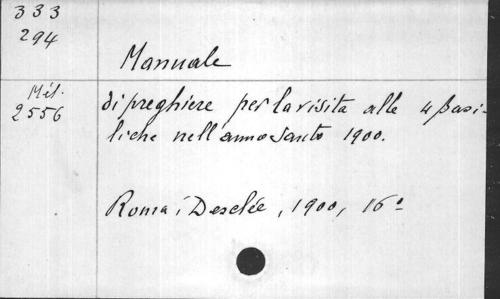 333
294
Manuale
Mél.
2556
di preghiere per la visita alle 4 Basi-
liche nell'anno Santo 1900.
Roma, Desclée, 1900, 16°